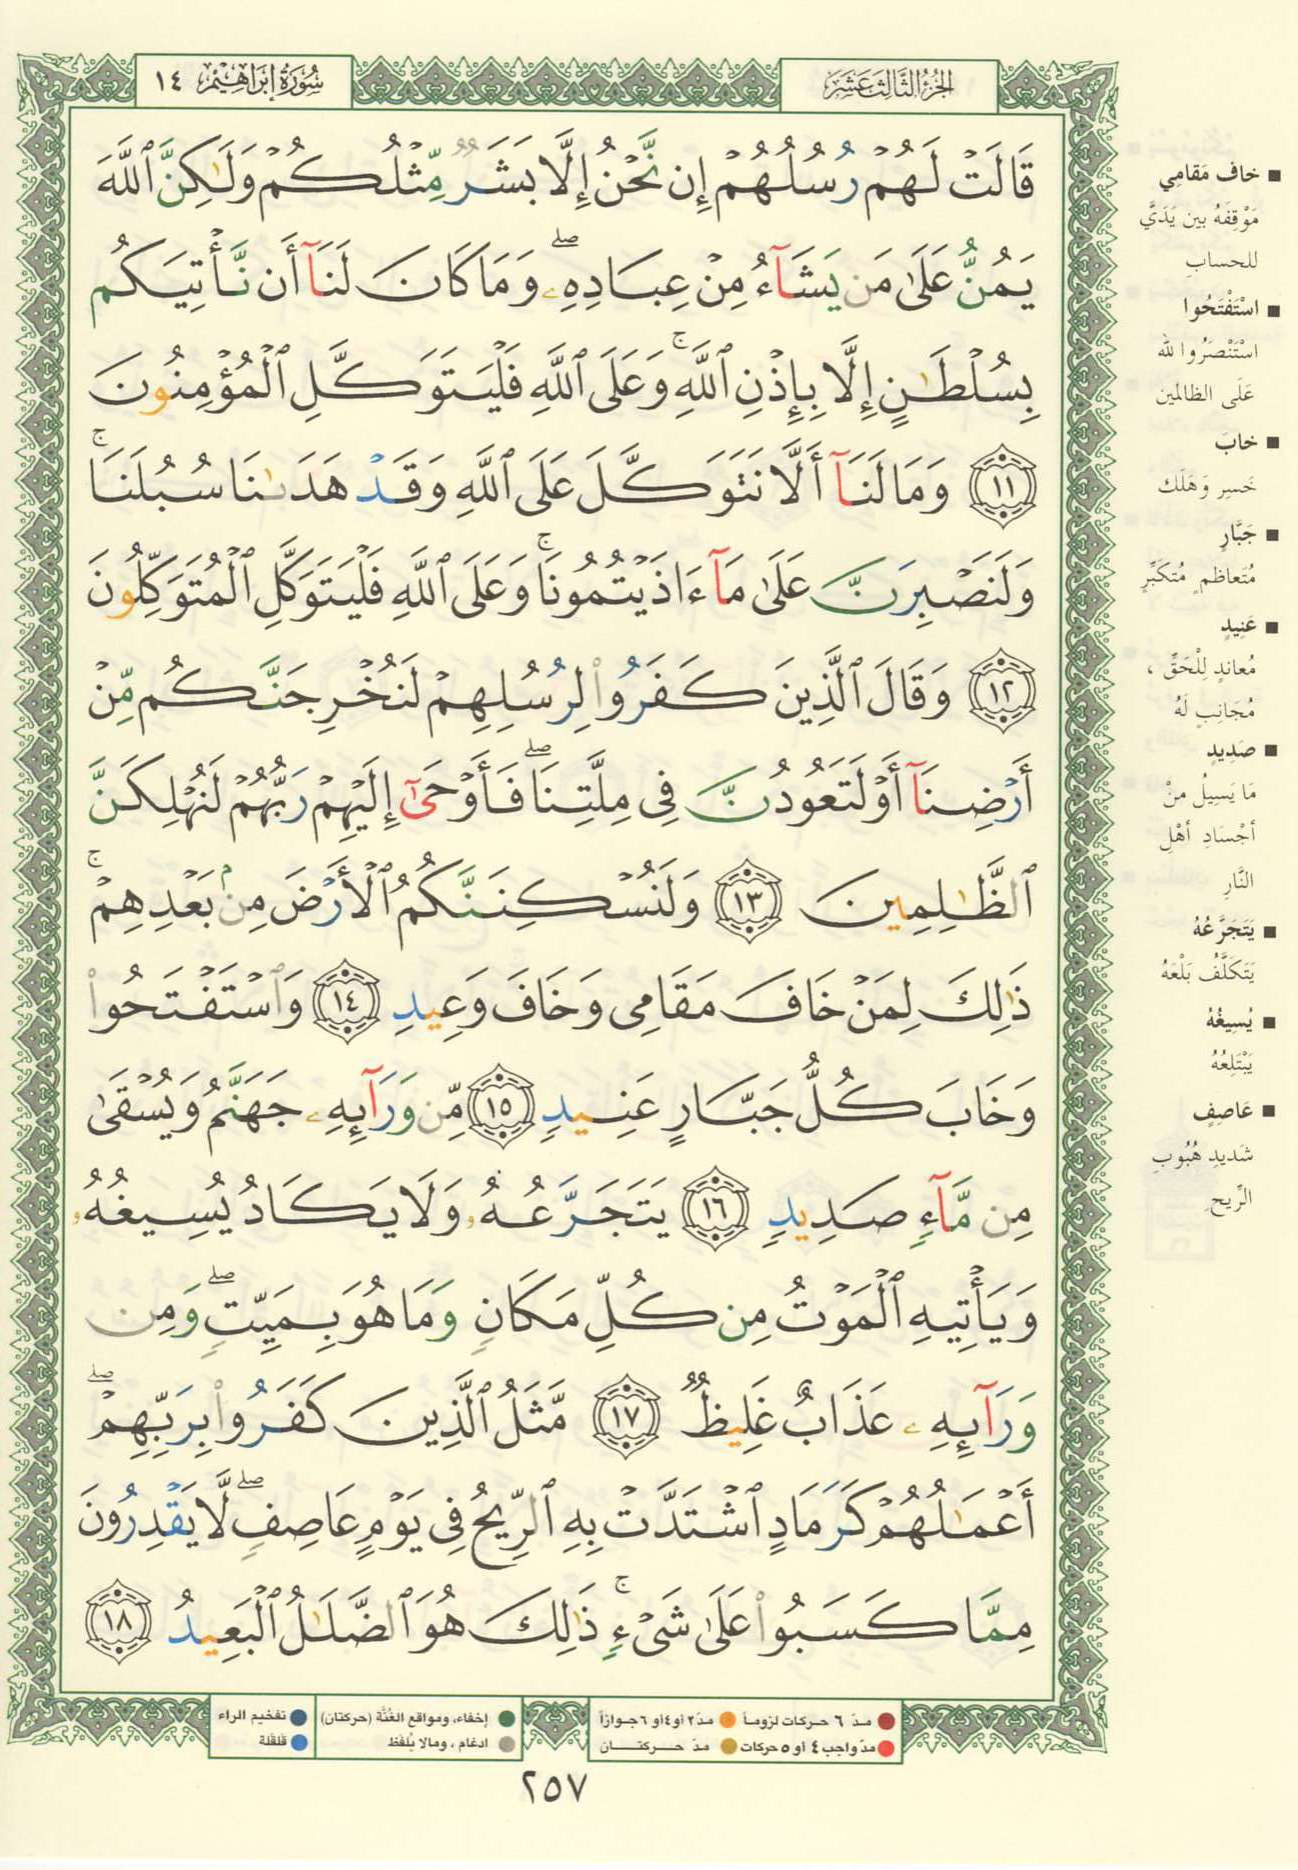 الجُزْءُ الثَّالِثَ عَشَرَ
سُورَةُ إِبْرَاهِيم ١٤
قَالَتْ لَهُمْ رُسُلُهُمْ إِن نَّحْنُ إِلَّا بَشَرٌ مِّثْلُكُمْ وَلَٰكِنَّ ٱللَّهَ
يَمُنُّ عَلَىٰ مَن يَشَآءُ مِنْ عِبَادِهِۦ ۖ وَمَا كَانَ لَنَآ أَن نَّأْتِيَكُم
بِسُلْطَٰنٍ إِلَّا بِإِذْنِ ٱللَّهِ ۚ وَعَلَى ٱللَّهِ فَلْيَتَوَكَّلِ ٱلْمُؤْمِنُونَ
١١ وَمَا لَنَآ أَلَّا نَتَوَكَّلَ عَلَى ٱللَّهِ وَقَدْ هَدَىٰنَا سُبُلَنَا ۚ
وَلَنَصْبِرَنَّ عَلَىٰ مَآ ءَاذَيْتُمُونَا ۚ وَعَلَى ٱللَّهِ فَلْيَتَوَكَّلِ ٱلْمُتَوَكِّلُونَ
١٢ وَقَالَ ٱلَّذِينَ كَفَرُوا۟ لِرُسُلِهِمْ لَنُخْرِجَنَّكُم مِّنْ
أَرْضِنَآ أَوْ لَتَعُودُنَّ فِى مِلَّتِنَا ۖ فَأَوْحَىٰٓ إِلَيْهِمْ رَبُّهُمْ لَنُهْلِكَنَّ
ٱلظَّٰلِمِينَ ١٣ وَلَنُسْكِنَنَّكُمُ ٱلْأَرْضَ مِنۢ بَعْدِهِمْ ۚ
ذَٰلِكَ لِمَنْ خَافَ مَقَامِى وَخَافَ وَعِيدِ ١٤ وَٱسْتَفْتَحُوا۟
وَخَابَ كُلُّ جَبَّارٍ عَنِيدٍ ١٥ مِّن وَرَآئِهِۦ جَهَنَّمُ وَيُسْقَىٰ
مِن مَّآءٍ صَدِيدٍ ١٦ يَتَجَرَّعُهُۥ وَلَا يَكَادُ يُسِيغُهُۥ
وَيَأْتِيهِ ٱلْمَوْتُ مِن كُلِّ مَكَانٍ وَمَا هُوَ بِمَيِّتٍ ۖ وَمِن
وَرَآئِهِۦ عَذَابٌ غَلِيظٌ ١٧ مَّثَلُ ٱلَّذِينَ كَفَرُوا۟ بِرَبِّهِمْ ۖ
أَعْمَٰلُهُمْ كَرَمَادٍ ٱشْتَدَّتْ بِهِ ٱلرِّيحُ فِى يَوْمٍ عَاصِفٍ ۖ لَّا يَقْدِرُونَ
مِمَّا كَسَبُوا۟ عَلَىٰ شَىْءٍ ۚ ذَٰلِكَ هُوَ ٱلضَّلَٰلُ ٱلْبَعِيدُ ١٨
■ خاف مَقامِي
مَوْقِفَهُ بين يَدَيَّ
للحسابِ
■ اسْتَفْتَحُوا
اسْتَنْصَرُوا لله
عَلَى الظالمِين
■ خابَ
خَسِر وَهَلَك
■ جَبَّارٍ
مُتَعاظمٍ مُتَكَبِّرٍ
■ عَنِيدٍ
مُعاندٍ لِلْحَقِّ ،
مُجَانِبٍ لَهُ
■ صَدِيدٍ
مَا يَسِيلُ منْ
أجْسَادِ أهْلِ
النَّارِ
■ يَتَجَرَّعُهُ
يَتَكَلَّفُ بَلْعَهُ
■ يُسِيغُهُ
يَبْتَلِعُهُ
■ عَاصِفٍ
شَديدِ هُبُوبِ
الرِّيح
مدّ ٦ حركات لزوماً مدّ ٢ أو ٤ أو ٦ جوازاً
مدّ واجب ٤ أو ٥ حركات مدّ حركتان
إخفاء، ومواقع الغُنَّة (حركتان) تفخيم الراء
ادغام ، ومالا يُلفَظ قلقلة
٢٥٧